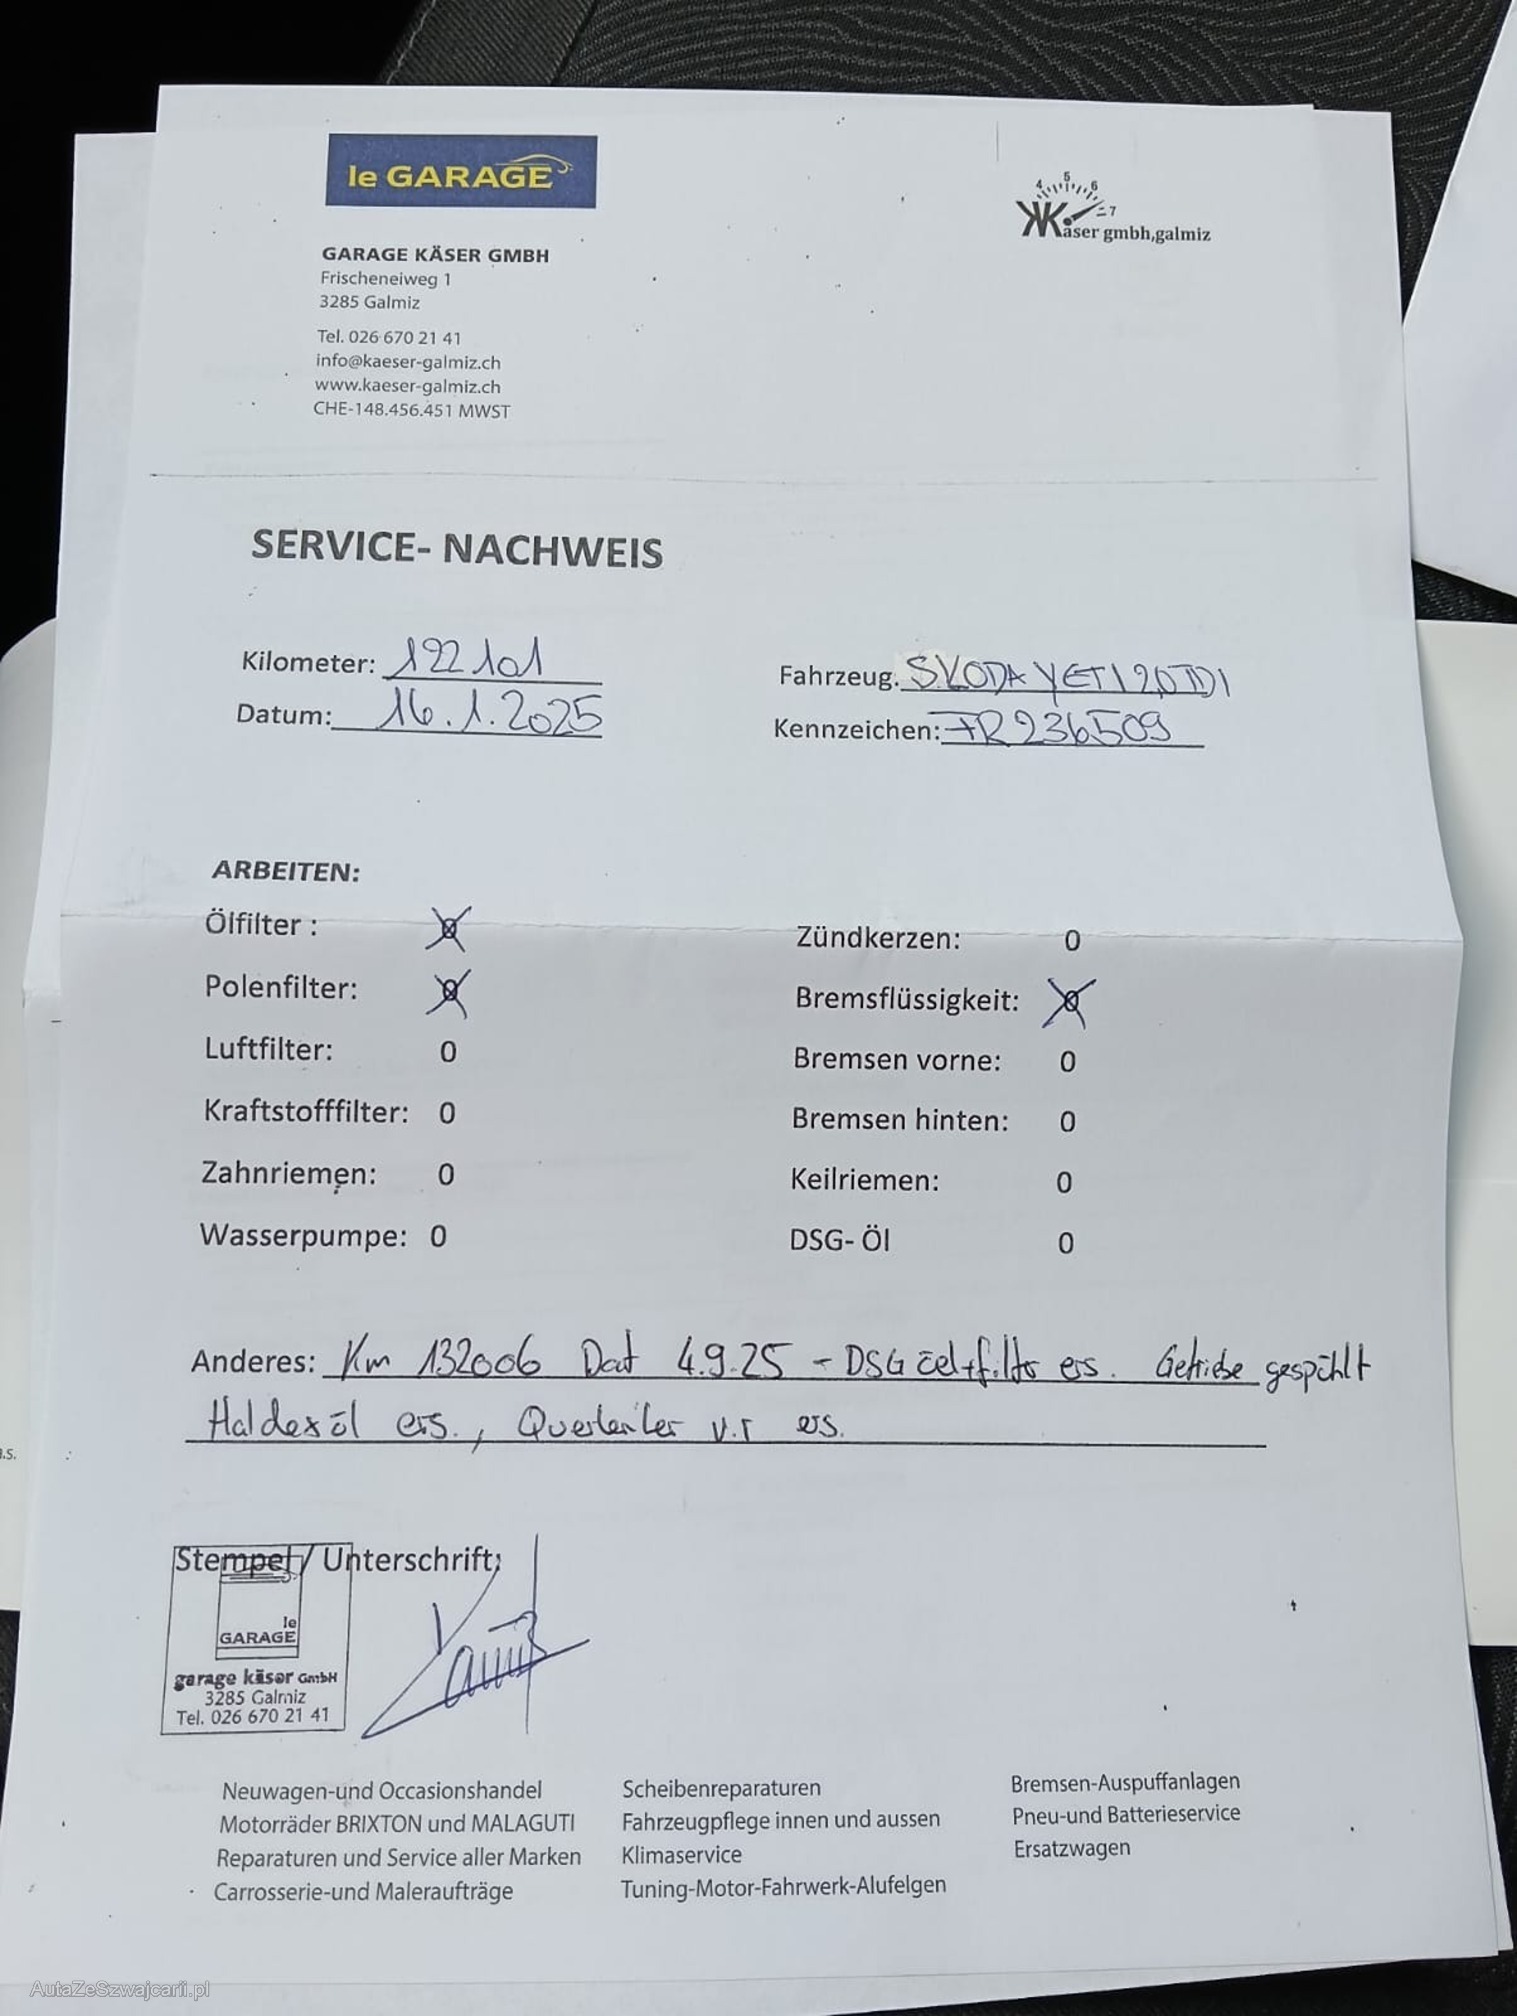 le GARAGE
4 5 6 7
Käser gmbh,galmiz
GARAGE KÄSER GMBH
Frischeneiweg 1
3285 Galmiz
Tel. 026 670 21 41
info@kaeser-galmiz.ch
www.kaeser-galmiz.ch
CHE-148.456.451 MWST
SERVICE- NACHWEIS
Kilometer: 122101
Fahrzeug. SKODA YETI 2,0 TDI
Datum: 16.1.2025
Kennzeichen: FR236509
ARBEITEN:
Ölfilter : X
Zündkerzen: 0
Polenfilter: X
Bremsflüssigkeit: X
Luftfilter: 0
Bremsen vorne: 0
Kraftstofffilter: 0
Bremsen hinten: 0
Zahnriemen: 0
Keilriemen: 0
Wasserpumpe: 0
DSG- Öl 0
Anderes: Km 132006 Dat 4.9.25 - DSG öel+filter ers. Getriebe gespühlt
Haldexöl ers., Querlenker v.r ers.
Stempel / Unterschrift:
le
GARAGE
garage käser GmbH
3285 Galmiz
Tel. 026 670 21 41
Neuwagen-und Occasionshandel
Motorräder BRIXTON und MALAGUTI
Reparaturen und Service aller Marken
Carrosserie-und Maleraufträge
Scheibenreparaturen
Fahrzeugpflege innen und aussen
Klimaservice
Tuning-Motor-Fahrwerk-Alufelgen
Bremsen-Auspuffanlagen
Pneu-und Batterieservice
Ersatzwagen
AutaZeSzwajcarii.pl